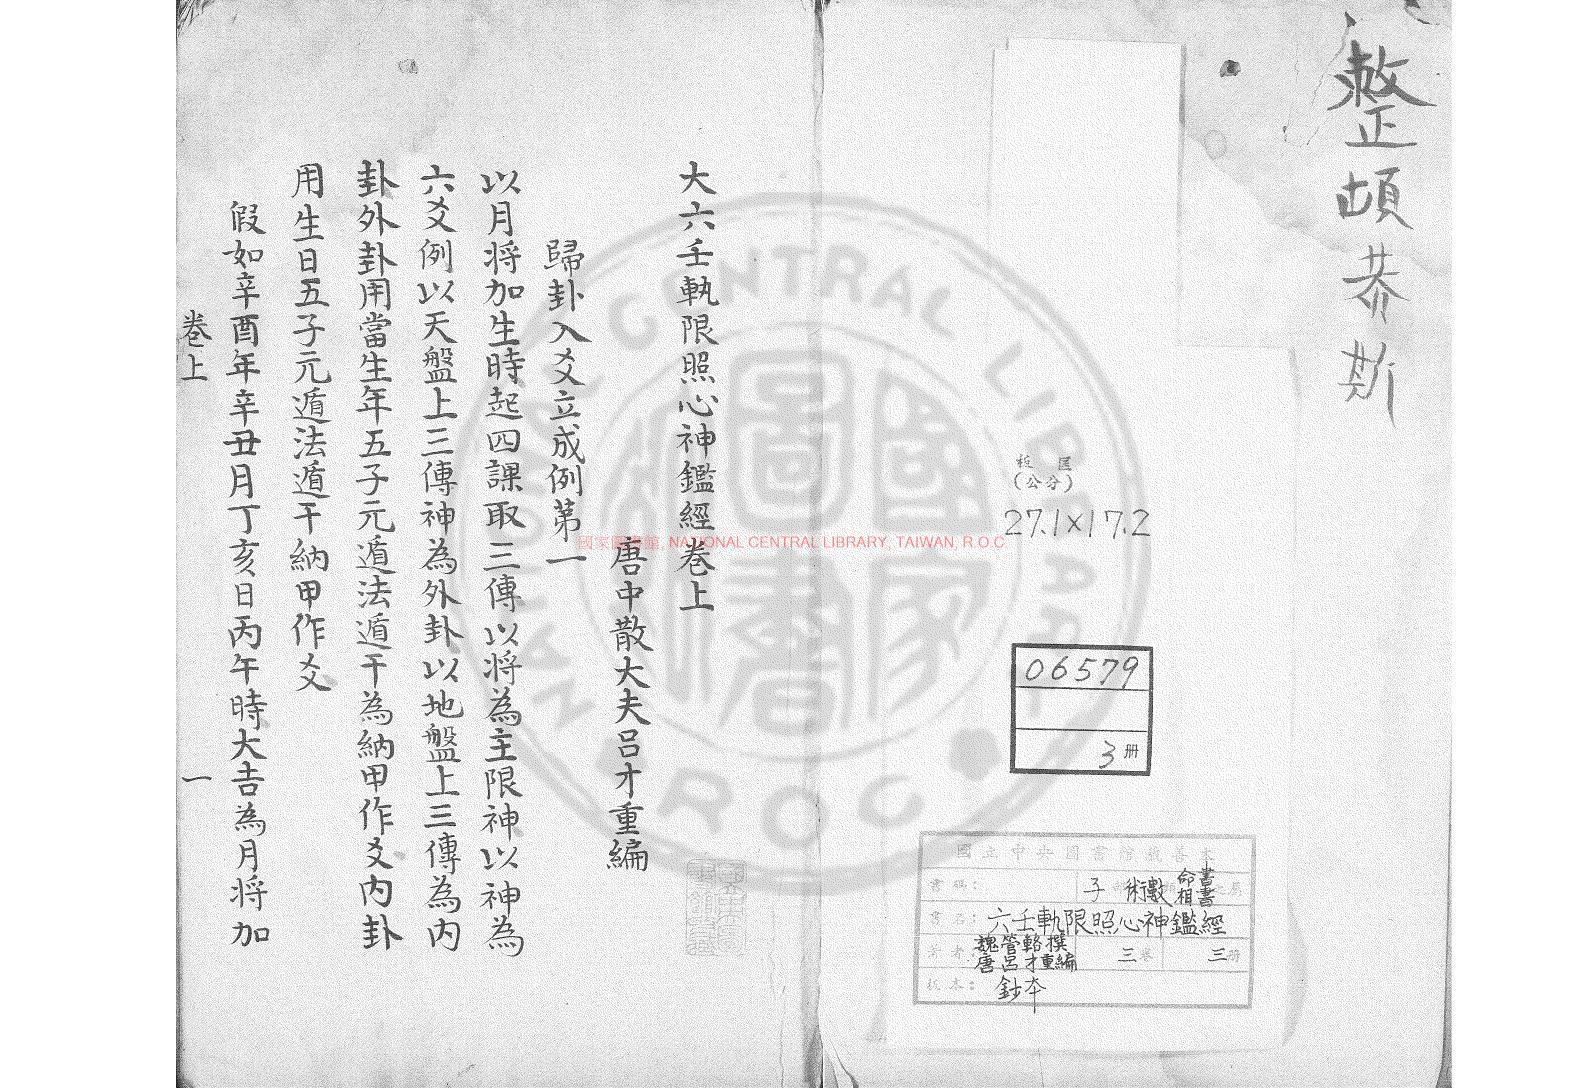 整頓恭斯
板匡
(公分)
27.1×17.2
06579
3冊
國立中央圖書館藏善本
書碼:
子 術數 命相 書書之屬
書名: 六壬軌限照心神鑑經
著者: 魏管輅撰
唐呂才重編
三卷 三冊
板本: 鈔本
大六壬軌限照心神鑑經卷上
唐中散大夫呂才重編
歸卦入爻立成例第一
以月將加生時起四課取三傳以將為主限神以神為
六爻例以天盤上三傳神為外卦以地盤上三傳為內
卦外卦用當生年五子元遁法遁干為納甲作爻內卦
用生日五子元遁法遁干納甲作爻
假如辛酉年辛丑月丁亥日丙午時大吉為月將加
卷上 一
國家圖書館, NATIONAL CENTRAL LIBRARY, TAIWAN, R.O.C
NATIONAL CENTRAL LIBRARY
R O C
國家圖書